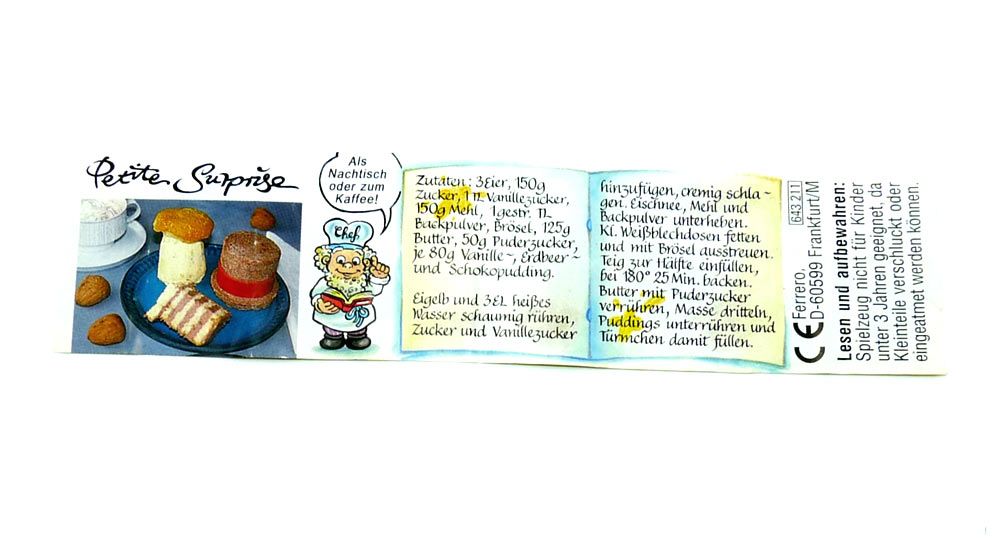 Petites Surprise
Als
Nachtisch
oder zum
Kaffee!
Chef
Zutaten: 3 Eier, 150g
Zucker, 1 TL Vanillezucker,
150g Mehl, 1 gestr. TL
Backpulver, Brösel, 125g
Butter, 50g Puderzucker,
je 80g Vanille-, Erdbeer-
und Schokopudding.
Eigelb und 3EL heißes
Wasser schaumig rühren,
Zucker und Vanillezucker
hinzufügen, cremig schla-
gen. Eischnee, Mehl und
Backpulver unterheben.
Kl. Weißblechdosen fetten
und mit Brösel ausstreuen.
Teig zur Hälfte einfüllen,
bei 180° 25 Min. backen.
Butter mit Puderzucker
verrühren, Masse dritteln,
Puddings unterrühren und
Türmchen damit füllen.
CE
643 211
Ferrero,
D-60599 Frankfurt/M
Lesen und aufbewahren:
Spielzeug nicht für Kinder
unter 3 Jahren geeignet, da
Kleinteile verschluckt oder
eingeatmet werden können.